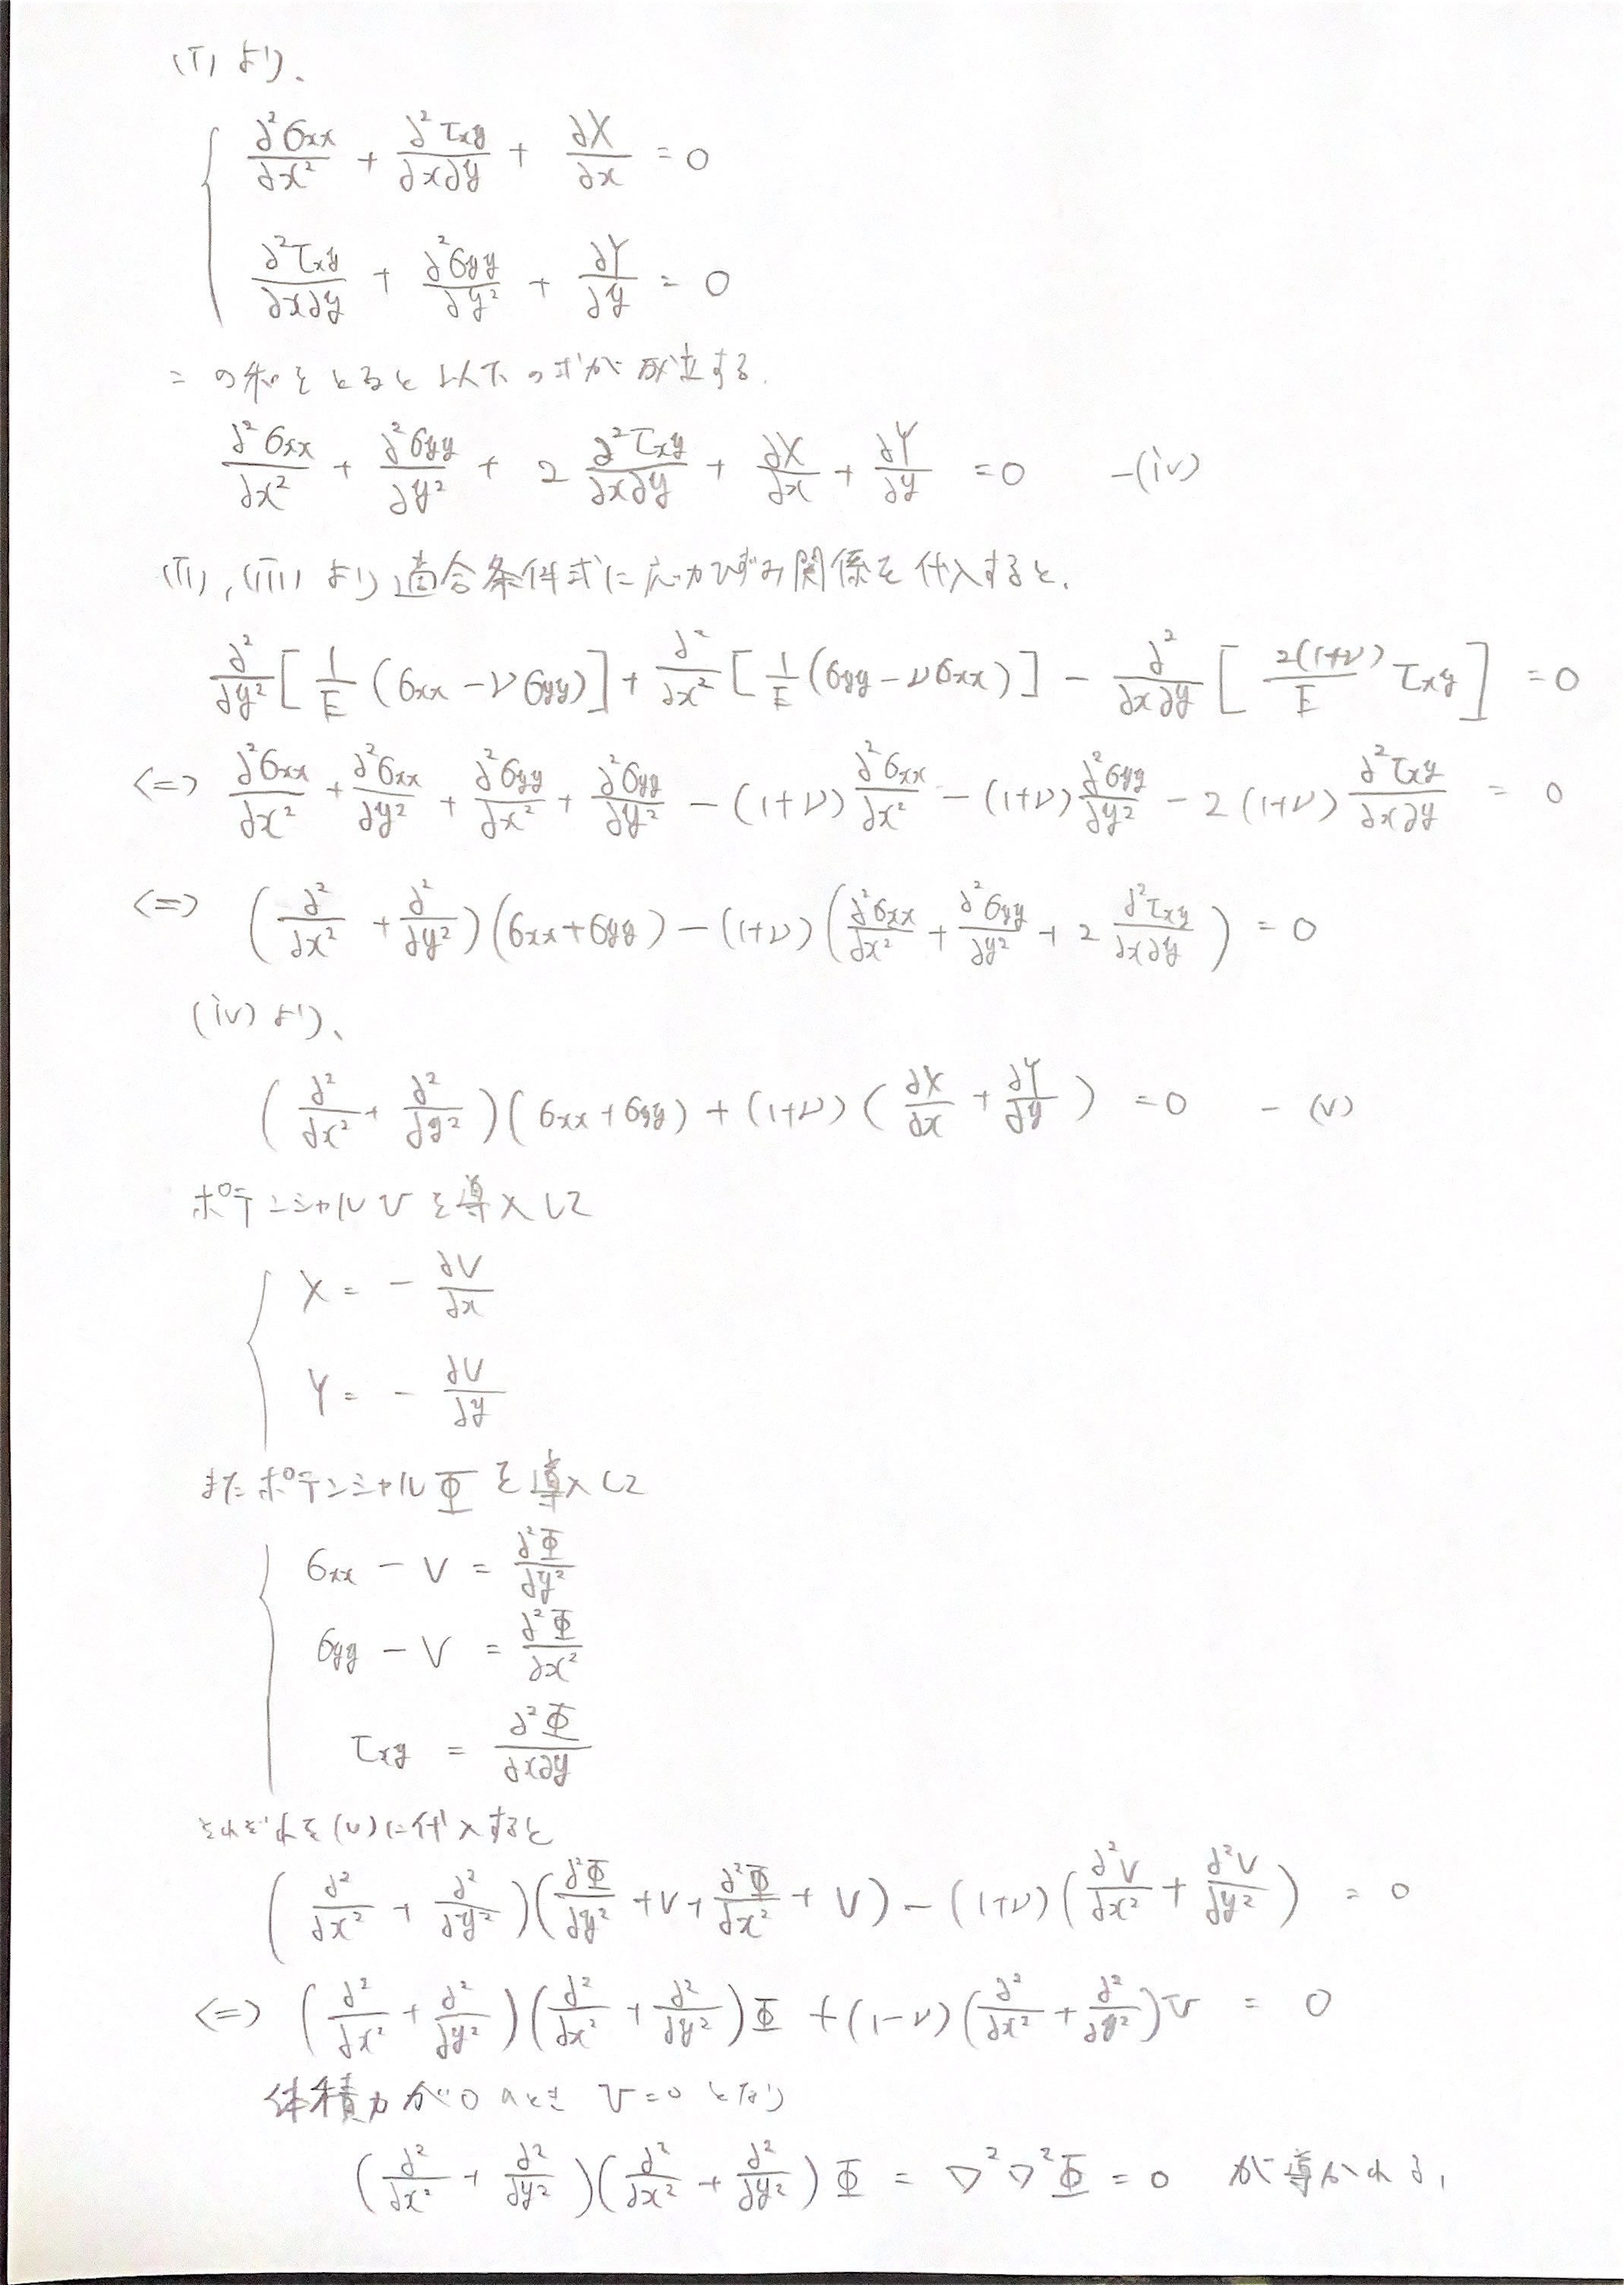 (ⅰ) より、
∂²σxx/∂x² + ∂²τxy/∂x∂y + ∂X/∂x = 0
∂²τxy/∂x∂y + ∂²σyy/∂y² + ∂Y/∂y = 0
この和をとると以下の式が成立する.
∂²σxx/∂x² + ∂²σyy/∂y² + 2 ∂²τxy/∂x∂y + ∂X/∂x + ∂Y/∂y = 0 -(iv)
(ⅱ), (ⅲ) より適合条件式に応力ひずみ関係を代入すると,
∂²/∂y² [1/E (σxx - νσyy)] + ∂²/∂x² [1/E (σyy - νσxx)] - ∂²/∂x∂y [2(1+ν)/E τxy] = 0
<=> ∂²σxx/∂x² + ∂²σxx/∂y² + ∂²σyy/∂x² + ∂²σyy/∂y² - (1+ν) ∂²σxx/∂x² - (1+ν) ∂²σyy/∂y² - 2(1+ν) ∂²τxy/∂x∂y = 0
<=> (∂²/∂x² + ∂²/∂y²)(σxx + σyy) - (1+ν)(∂²σxx/∂x² + ∂²σyy/∂y² + 2 ∂²τxy/∂x∂y) = 0
(iv) より、
(∂²/∂x² + ∂²/∂y²)(σxx + σyy) + (1+ν)(∂X/∂x + ∂Y/∂y) = 0 - (v)
ポテンシャルVを導入して
X = - ∂V/∂x
Y = - ∂V/∂y
またポテンシャルΦを導入して
σxx - V = ∂²Φ/∂y²
σyy - V = ∂²Φ/∂x²
τxy = ∂²Φ/∂x∂y
それぞれを(v)に代入すると
(∂²/∂x² + ∂²/∂y²)(∂²Φ/∂y² + V + ∂²Φ/∂x² + V) - (1+ν)(∂²V/∂x² + ∂²V/∂y²) = 0
<=> (∂²/∂x² + ∂²/∂y²)(∂²/∂x² + ∂²/∂y²)Φ + (1-ν)(∂²/∂x² + ∂²/∂y²)V = 0
体積力が0のとき V=0 となり
(∂²/∂x² + ∂²/∂y²)(∂²/∂x² + ∂²/∂y²)Φ = ∇²∇²Φ = 0 が導かれる,